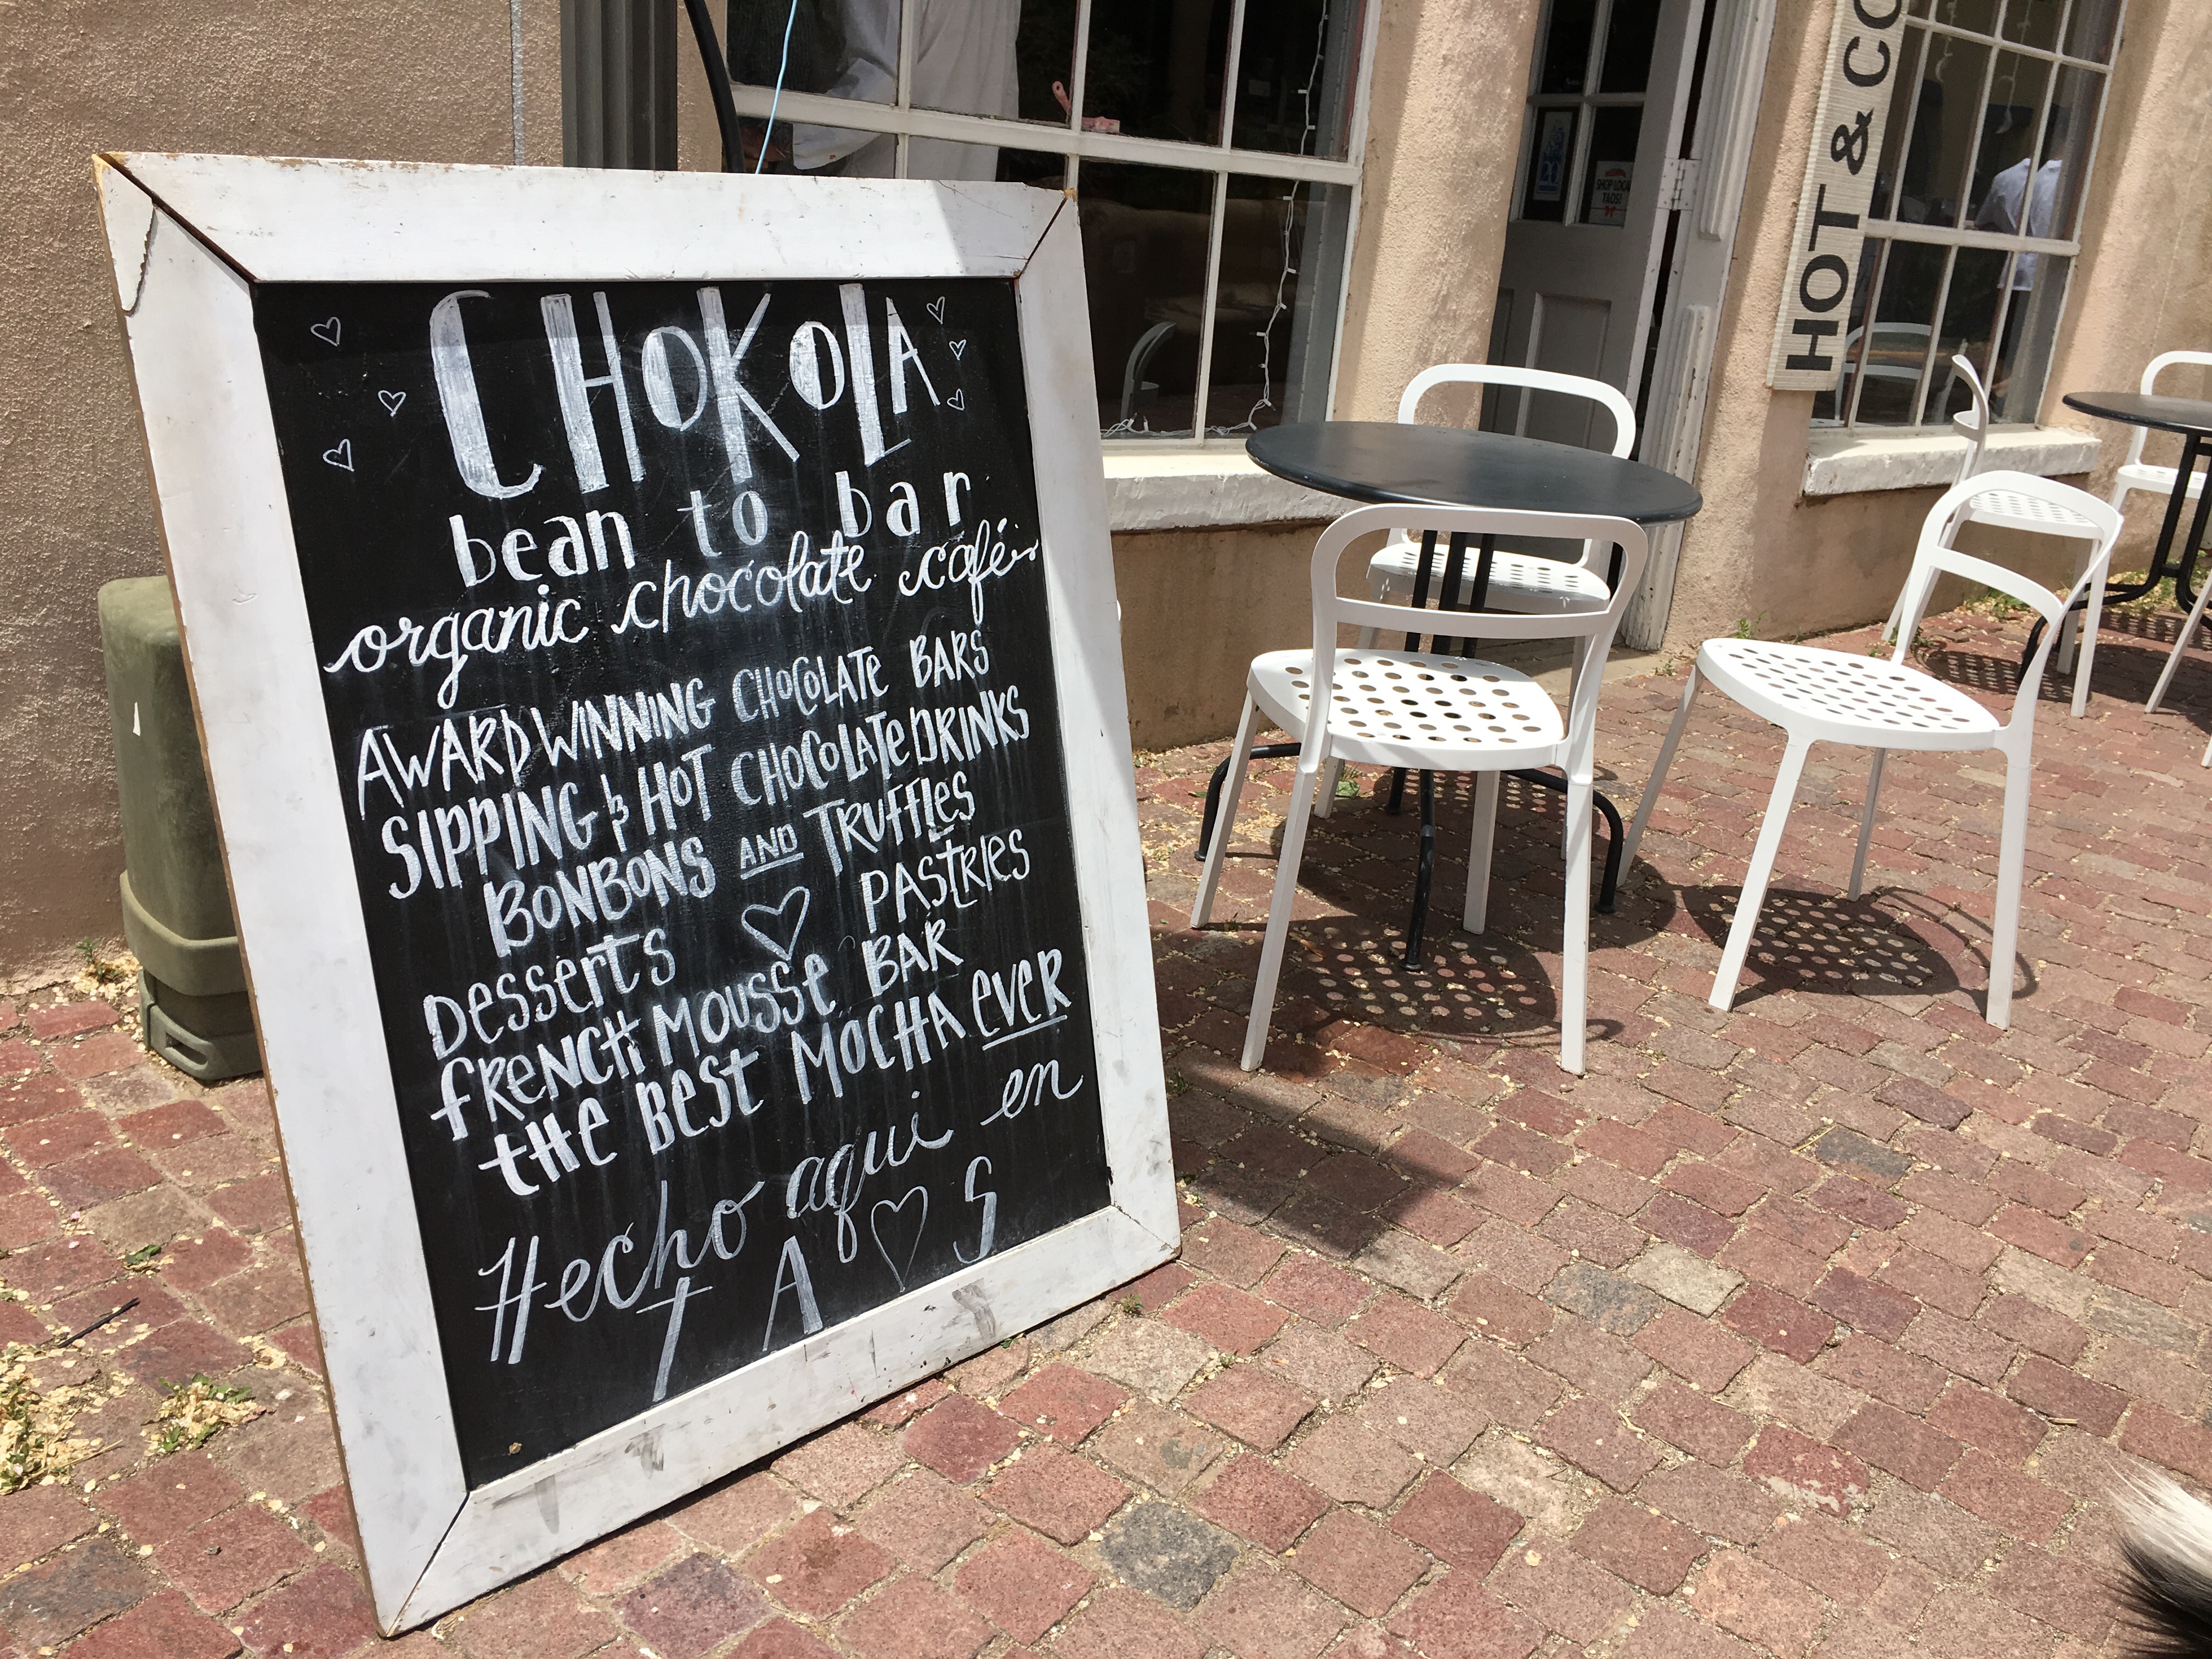 CHOKOLA
bean to bar
organic chocolate café
AWARD WINNING CHOCOLATE BARS
SIPPING & HOT CHOCOLATE DRINKS
BONBONS AND TRUFFLES
DESSERTS PASTRIES
FRENCH MOUSSE BAR
THE BEST MOCHA EVER
Hecho aqui en
TA♡S
HOT & CO
SHOP LOCAL
TAOS!